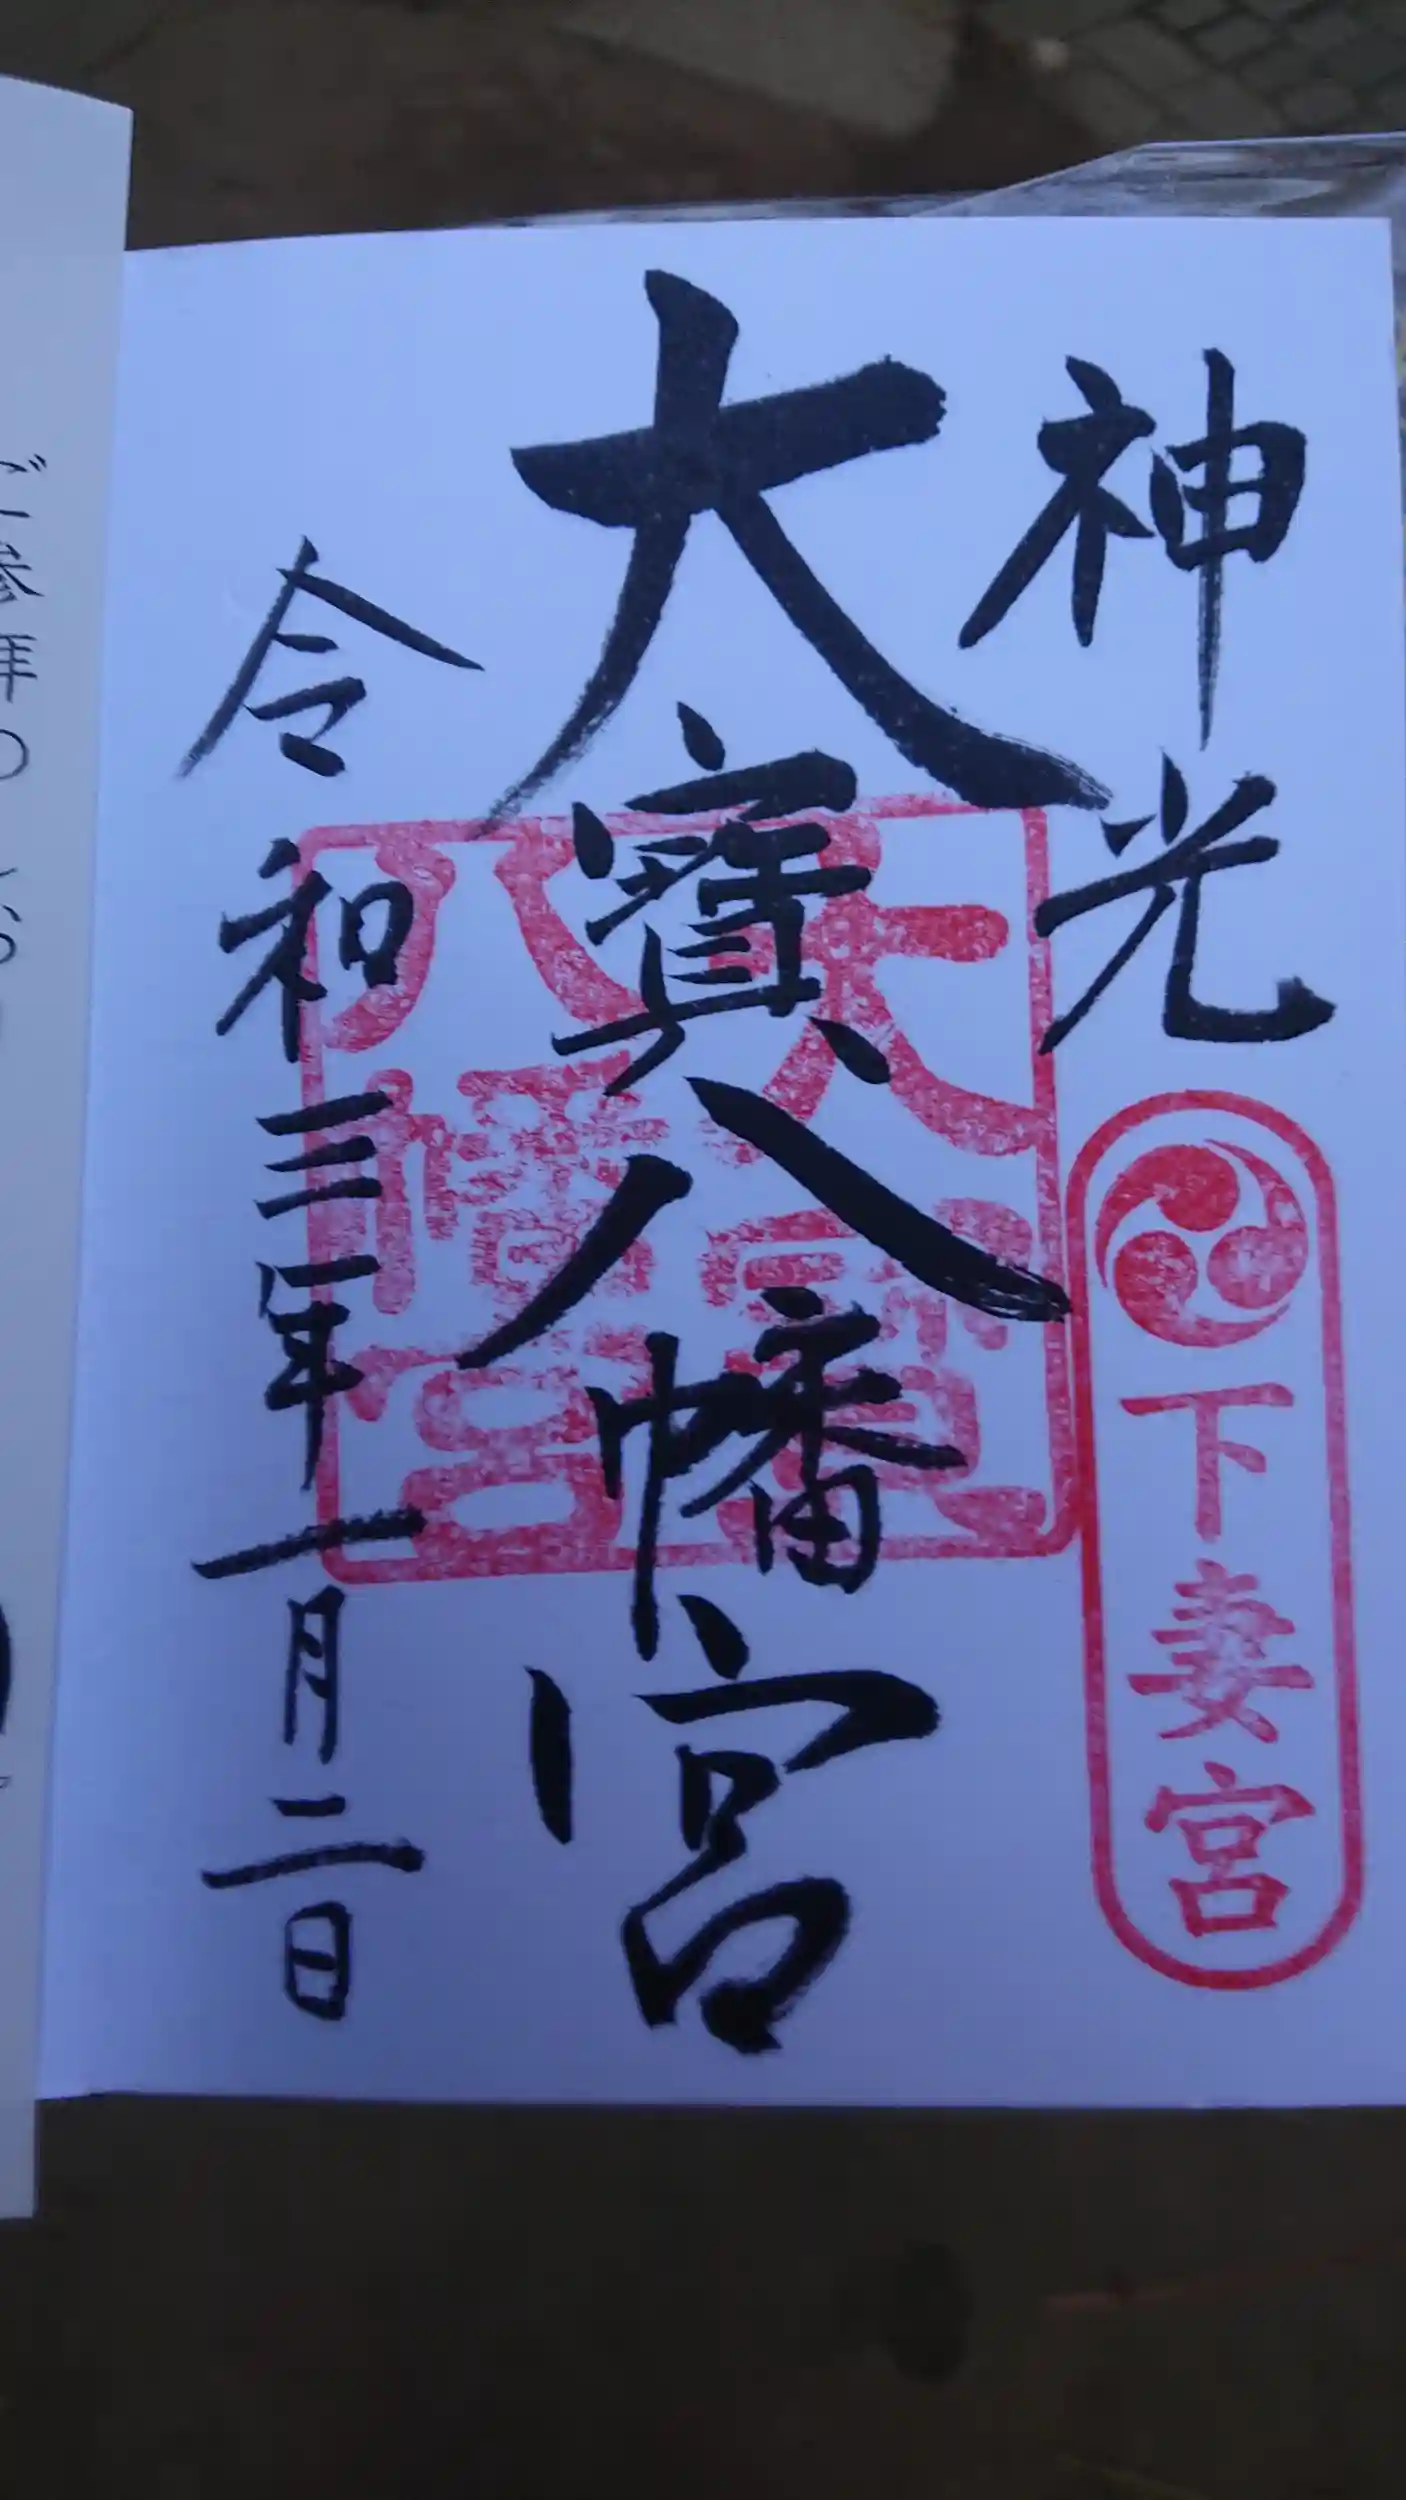 神光
下妻宮
大寳八幡宮
大寳八幡宮
令和三年一月二日
ご参拝